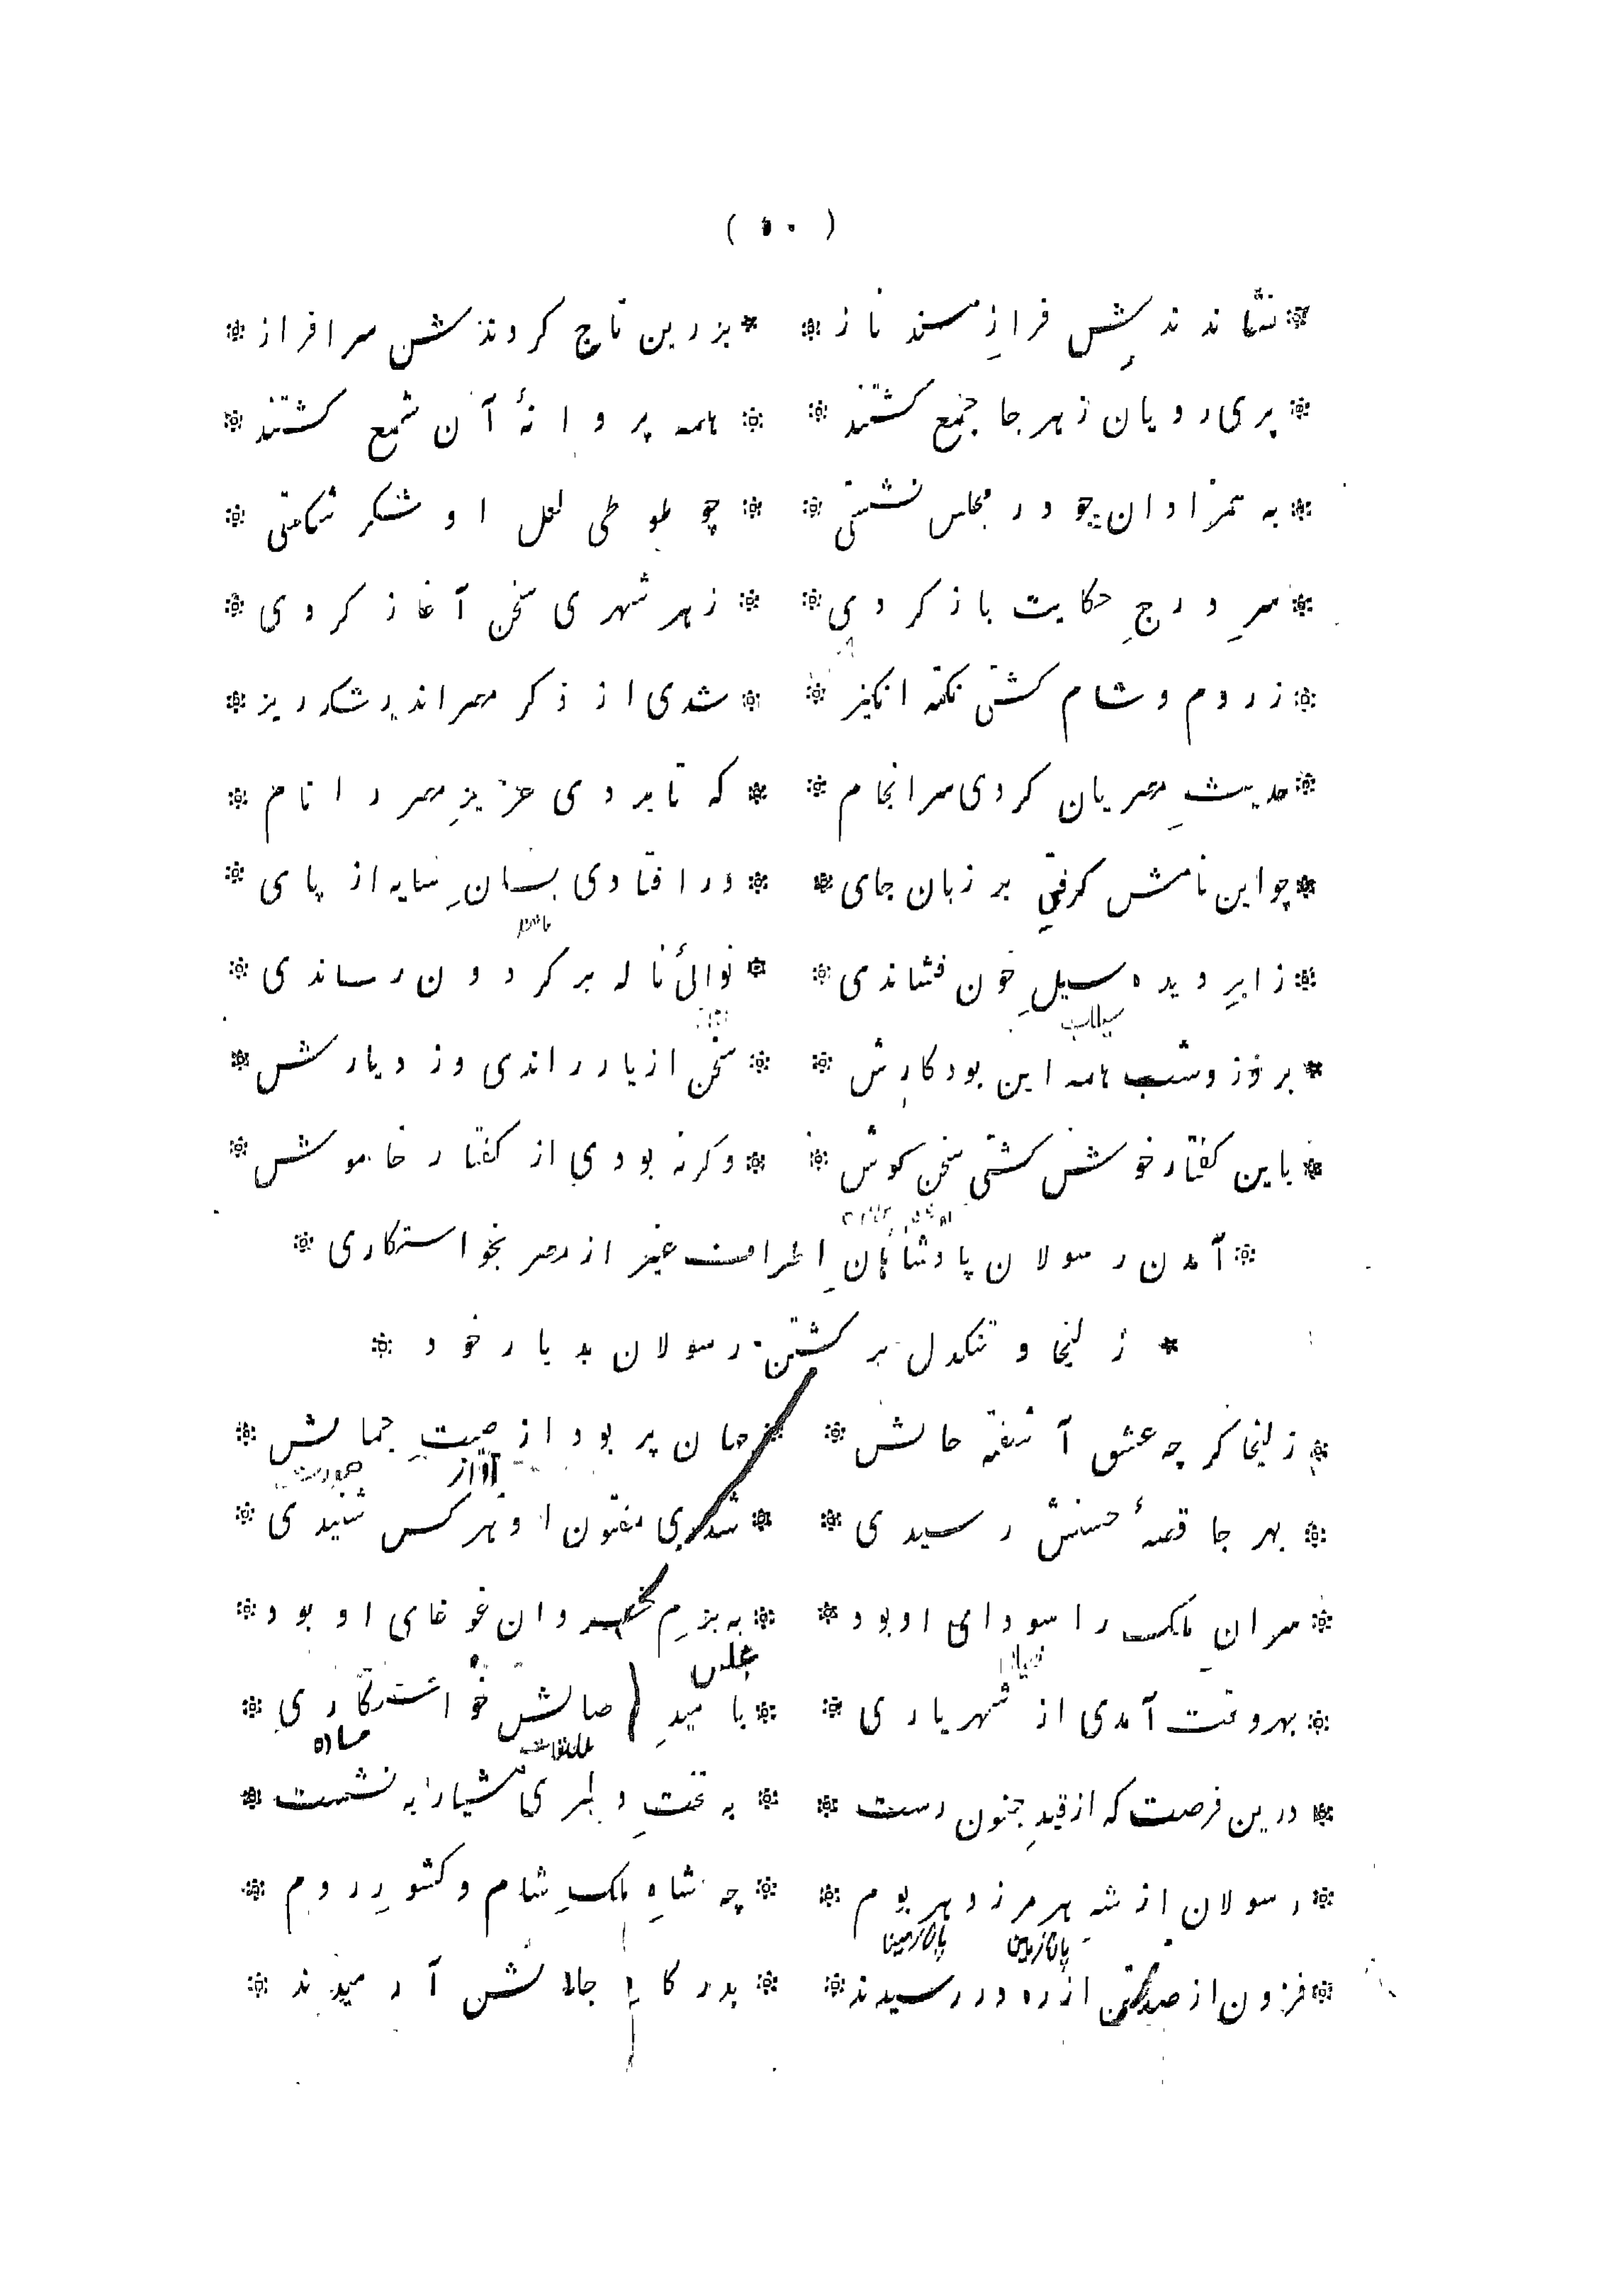 ( ۵۰ )
* نشاندندش فرازِ مسند ناز * * بزرین تاج کردندش سرافراز *
* پری‌رویان ز هر جا جمع کشتند * * همه پروانهٔ آن شمع کشتند *
* به همزادان چو در مجلس نشستی * * چو طوطی لعل او شکر شکستی *
* سرِ درجِ حکایت باز کردی * * ز هر شهری سخن آغاز کردی *
* ز روم و شام کشتی نکته انکیز * * شدی از ذکر مصر اندر شکر ریز *
* حدیثِ مصریان کردی سرانجام * * که تا بردی عزیزِ مصر را نام *
* چو این نامش کرفتی بر زبان جای * * در افتادی بسانِ سایه از پای *
* ز ابرِ دیده سیلِ خون فشاندی * * نوائ ناله بر کردون رساندی *
سیلاب
* بروز و شب همه این بود کارش * * سخن از یار راندی وز دیارش *
* باین کفتار خوش کشتی سخن کوش * * وکرنه بودی از کفتار خاموش *
* آمدن رسولان پادشاهانِ اطراف غیر از مصر بخواستکاری *
* زلیخا و تنکدل برکشتن رسولان بدیار خود *
* زلیخا کرچه عشق آشفته حالش * * جهان پر بود از صیتِ جمالش *
آواز
* بهر جا قصهٔ حسنش رسیدی * * شدی مفتون او هر کس شنیدی *
* سرانِ ملک را سودای او بود * * به بزمِ خسروان غوغای او بود *
مجلس
* بهر وقت آمدی از شهریاری * * با میدِ وصالش خواستکاری *
ملاقات
* درین فرصت که از قیدِ جنون رست * * به تختِ دلبری هشیار به نشست *
* رسولان از شهِ هر مرز و هر بوم * * چه شاهِ ملکِ شام و کشورِ روم *
* فزون از صد کس از ره در رسیدند * * بدرکاهِ جلالش آرمیدند *